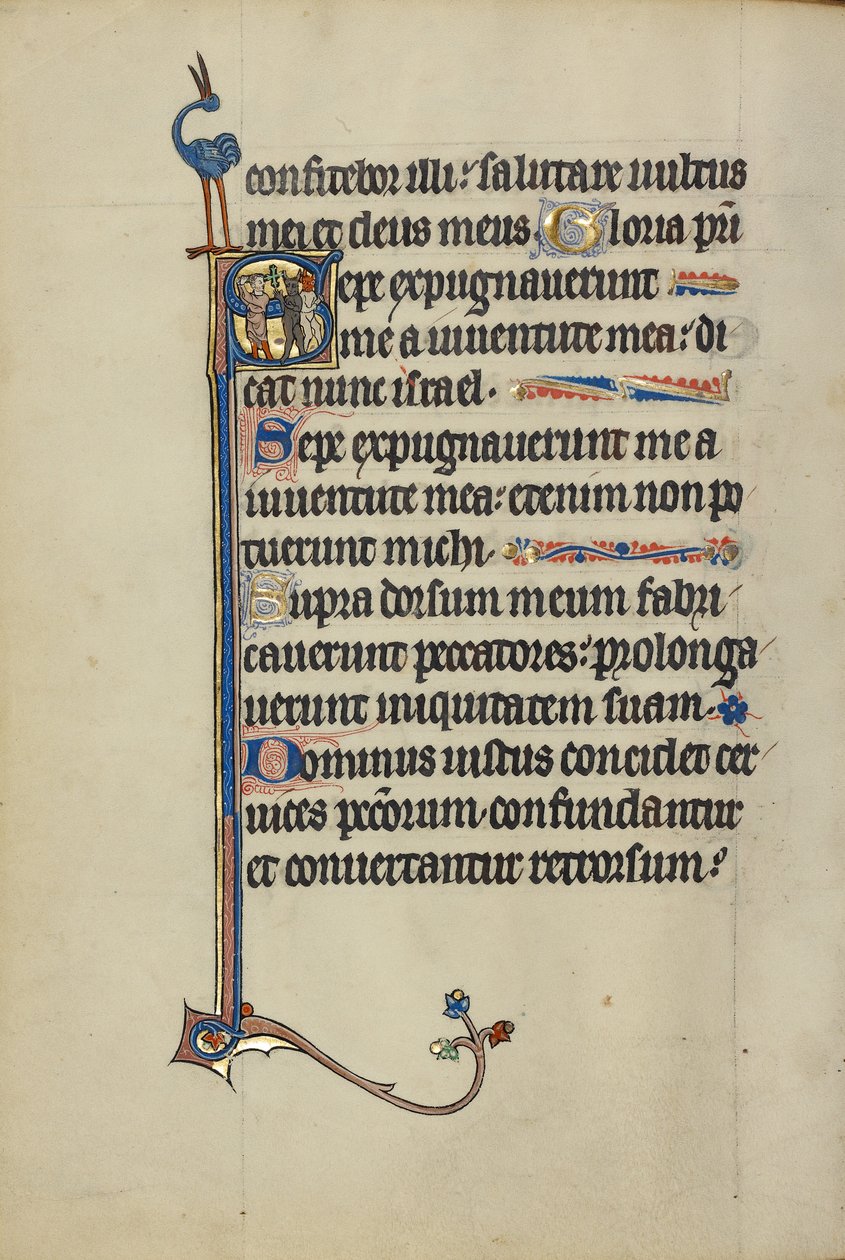 confitebor illi: salutare uultus
mei et deus meus. Gloria pr̄i
Sepe expugnauerunt
me a iuuentute mea: di
cat nunc israel.
Sepe expugnauerunt me a
iuuentute mea: etenim non po
tuerunt michi.
Supra dorsum meum fabri
cauerunt peccatores: prolonga
uerunt iniquitatem suam.
Dominus iustus concidet cer
uices pcc̄orum. confundantur
et conuertantur retrorsum: